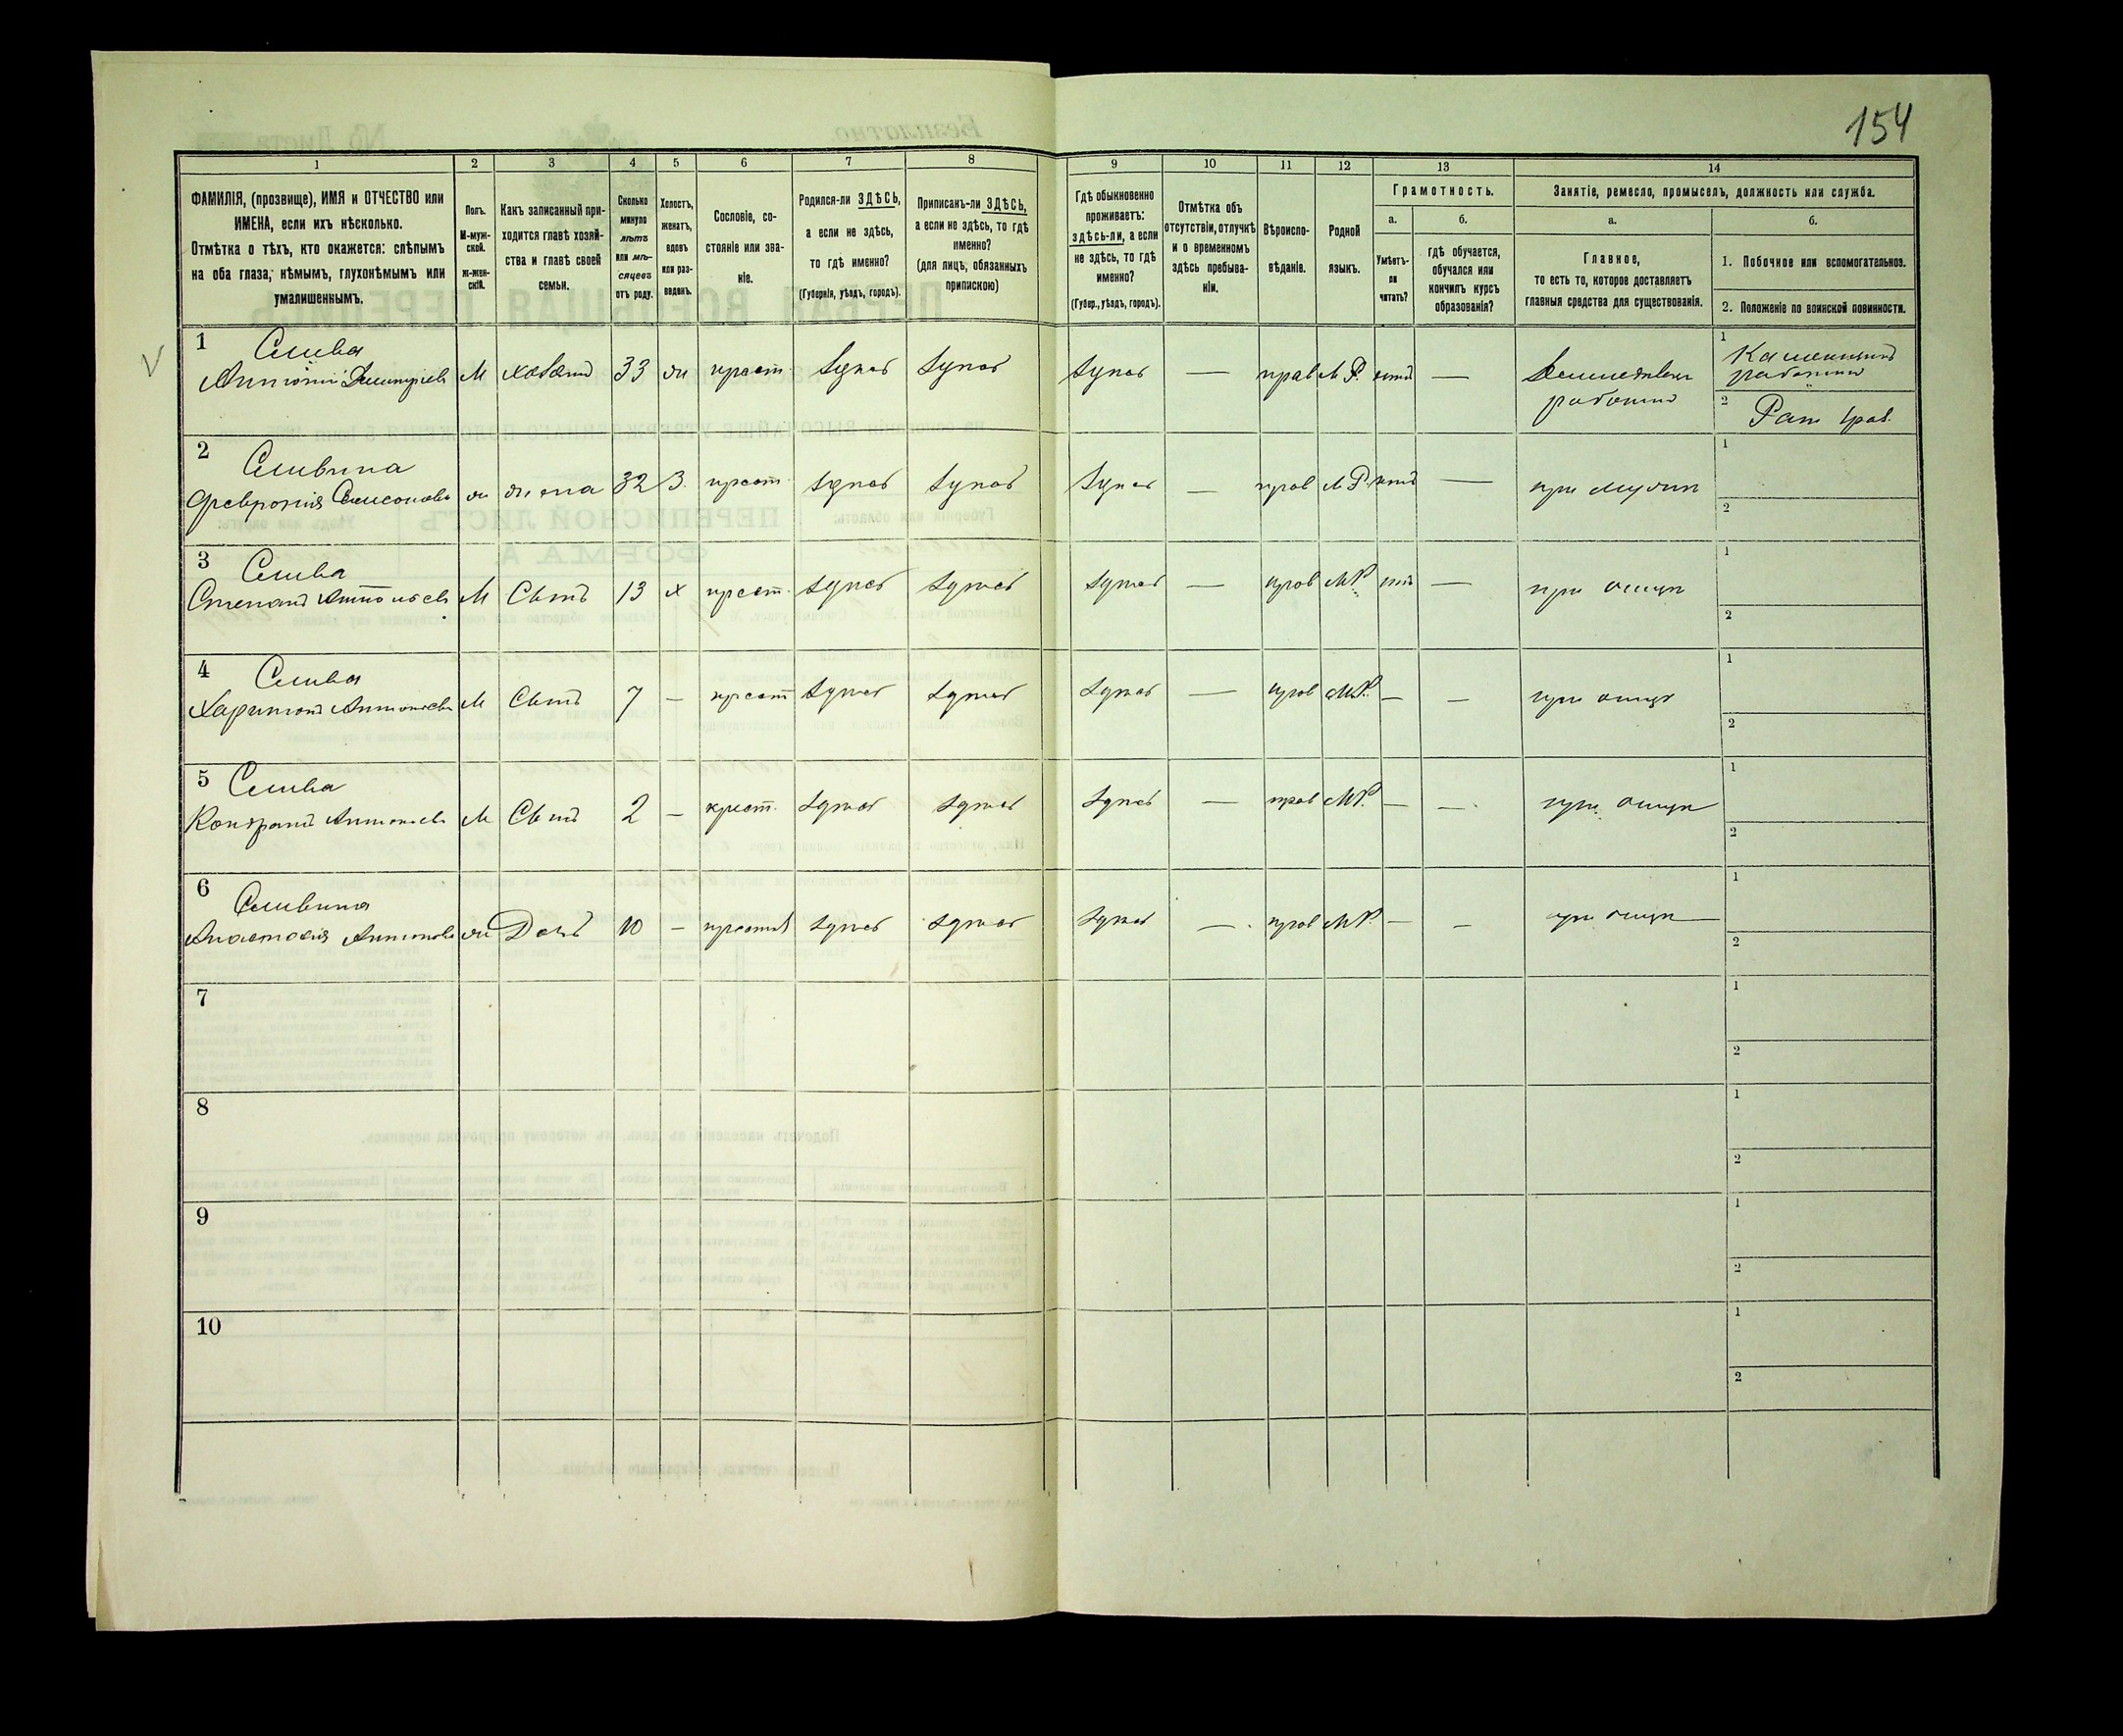 154
1
2
3
4
5
6
7
8
9
10
11
12
13
14
ФАМИЛІЯ, (прозвище), ИМЯ и ОТЧЕСТВО или
ИМЕНА, если ихъ нѣсколько.
Отмѣтка о тѣхъ, кто окажется: слѣпымъ
на оба глаза, нѣмымъ, глухонѣмымъ или
умалишеннымъ.
Полъ.
М-муж-
ской.
ж-жен-
скій.
Какъ записанный при-
ходится главѣ хозяй-
ства и главѣ своей
семьи.
Сколько
минуло
лѣтъ
или мѣ-
сяцевъ
отъ роду.
Холостъ,
женатъ,
вдовъ
или раз-
веденъ.
Сословіе, со-
стояніе или зва-
ніе.
Родился-ли ЗДѢСЬ,
а если не здѣсь,
то гдѣ именно?
(Губернія, уѣздъ, городъ).
Приписанъ-ли ЗДѢСЬ,
а если не здѣсь, то гдѣ
именно?
(для лицъ, обязанныхъ
припискою)
Гдѣ обыкновенно
проживаетъ:
здѣсь-ли, а если
не здѣсь, то гдѣ
именно?
(Губер., уѣздъ, городъ).
Отмѣтка объ
отсутствіи, отлучкѣ
и о временномъ
здѣсь пребыва-
ніи.
Вѣроиспо-
вѣданіе.
Родной
языкъ.
Грамотность.
а.
б.
Умѣетъ-
ли
читать?
гдѣ обучается,
обучался или
кончилъ курсъ
образованія?
Занятіе, ремесло, промыселъ, должность или служба.
а.
б.
Главное,
то есть то, которое доставляетъ
главныя средства для существованія.
1. Побочное или вспомогательное.
2. Положеніе по воинской повинности.
1 Слива
Антоній Дмитріевъ М 33 ж крест. здѣсь здѣсь здѣсь — прав М.Р. нѣтъ —
1
2 Рат
2 Сливина
Февронія ж жена 32 З. крест. здѣсь здѣсь здѣсь — прав М.Р. нѣтъ — при мужѣ
1
2
3 Слива
Степанъ Антоньевъ М Сынъ 13 х крест. здѣсь здѣсь здѣсь — прав М.Р. нѣтъ — при отцѣ
1
2
4 Слива
Харитонъ Антоньевъ М Сынъ 7 — крест здѣсь здѣсь здѣсь — прав М.Р. — — при отцѣ
1
2
5 Слива
Антоньевъ М Сынъ 2 — крест. здѣсь здѣсь здѣсь — прав М.Р. — — при отцѣ
1
2
6 Сливина
Анастасія Антонова ж Дочь 10 — здѣсь здѣсь здѣсь — прав М.Р. — — при отцѣ
1
2
7
1
2
8
1
2
9
1
2
10
1
2